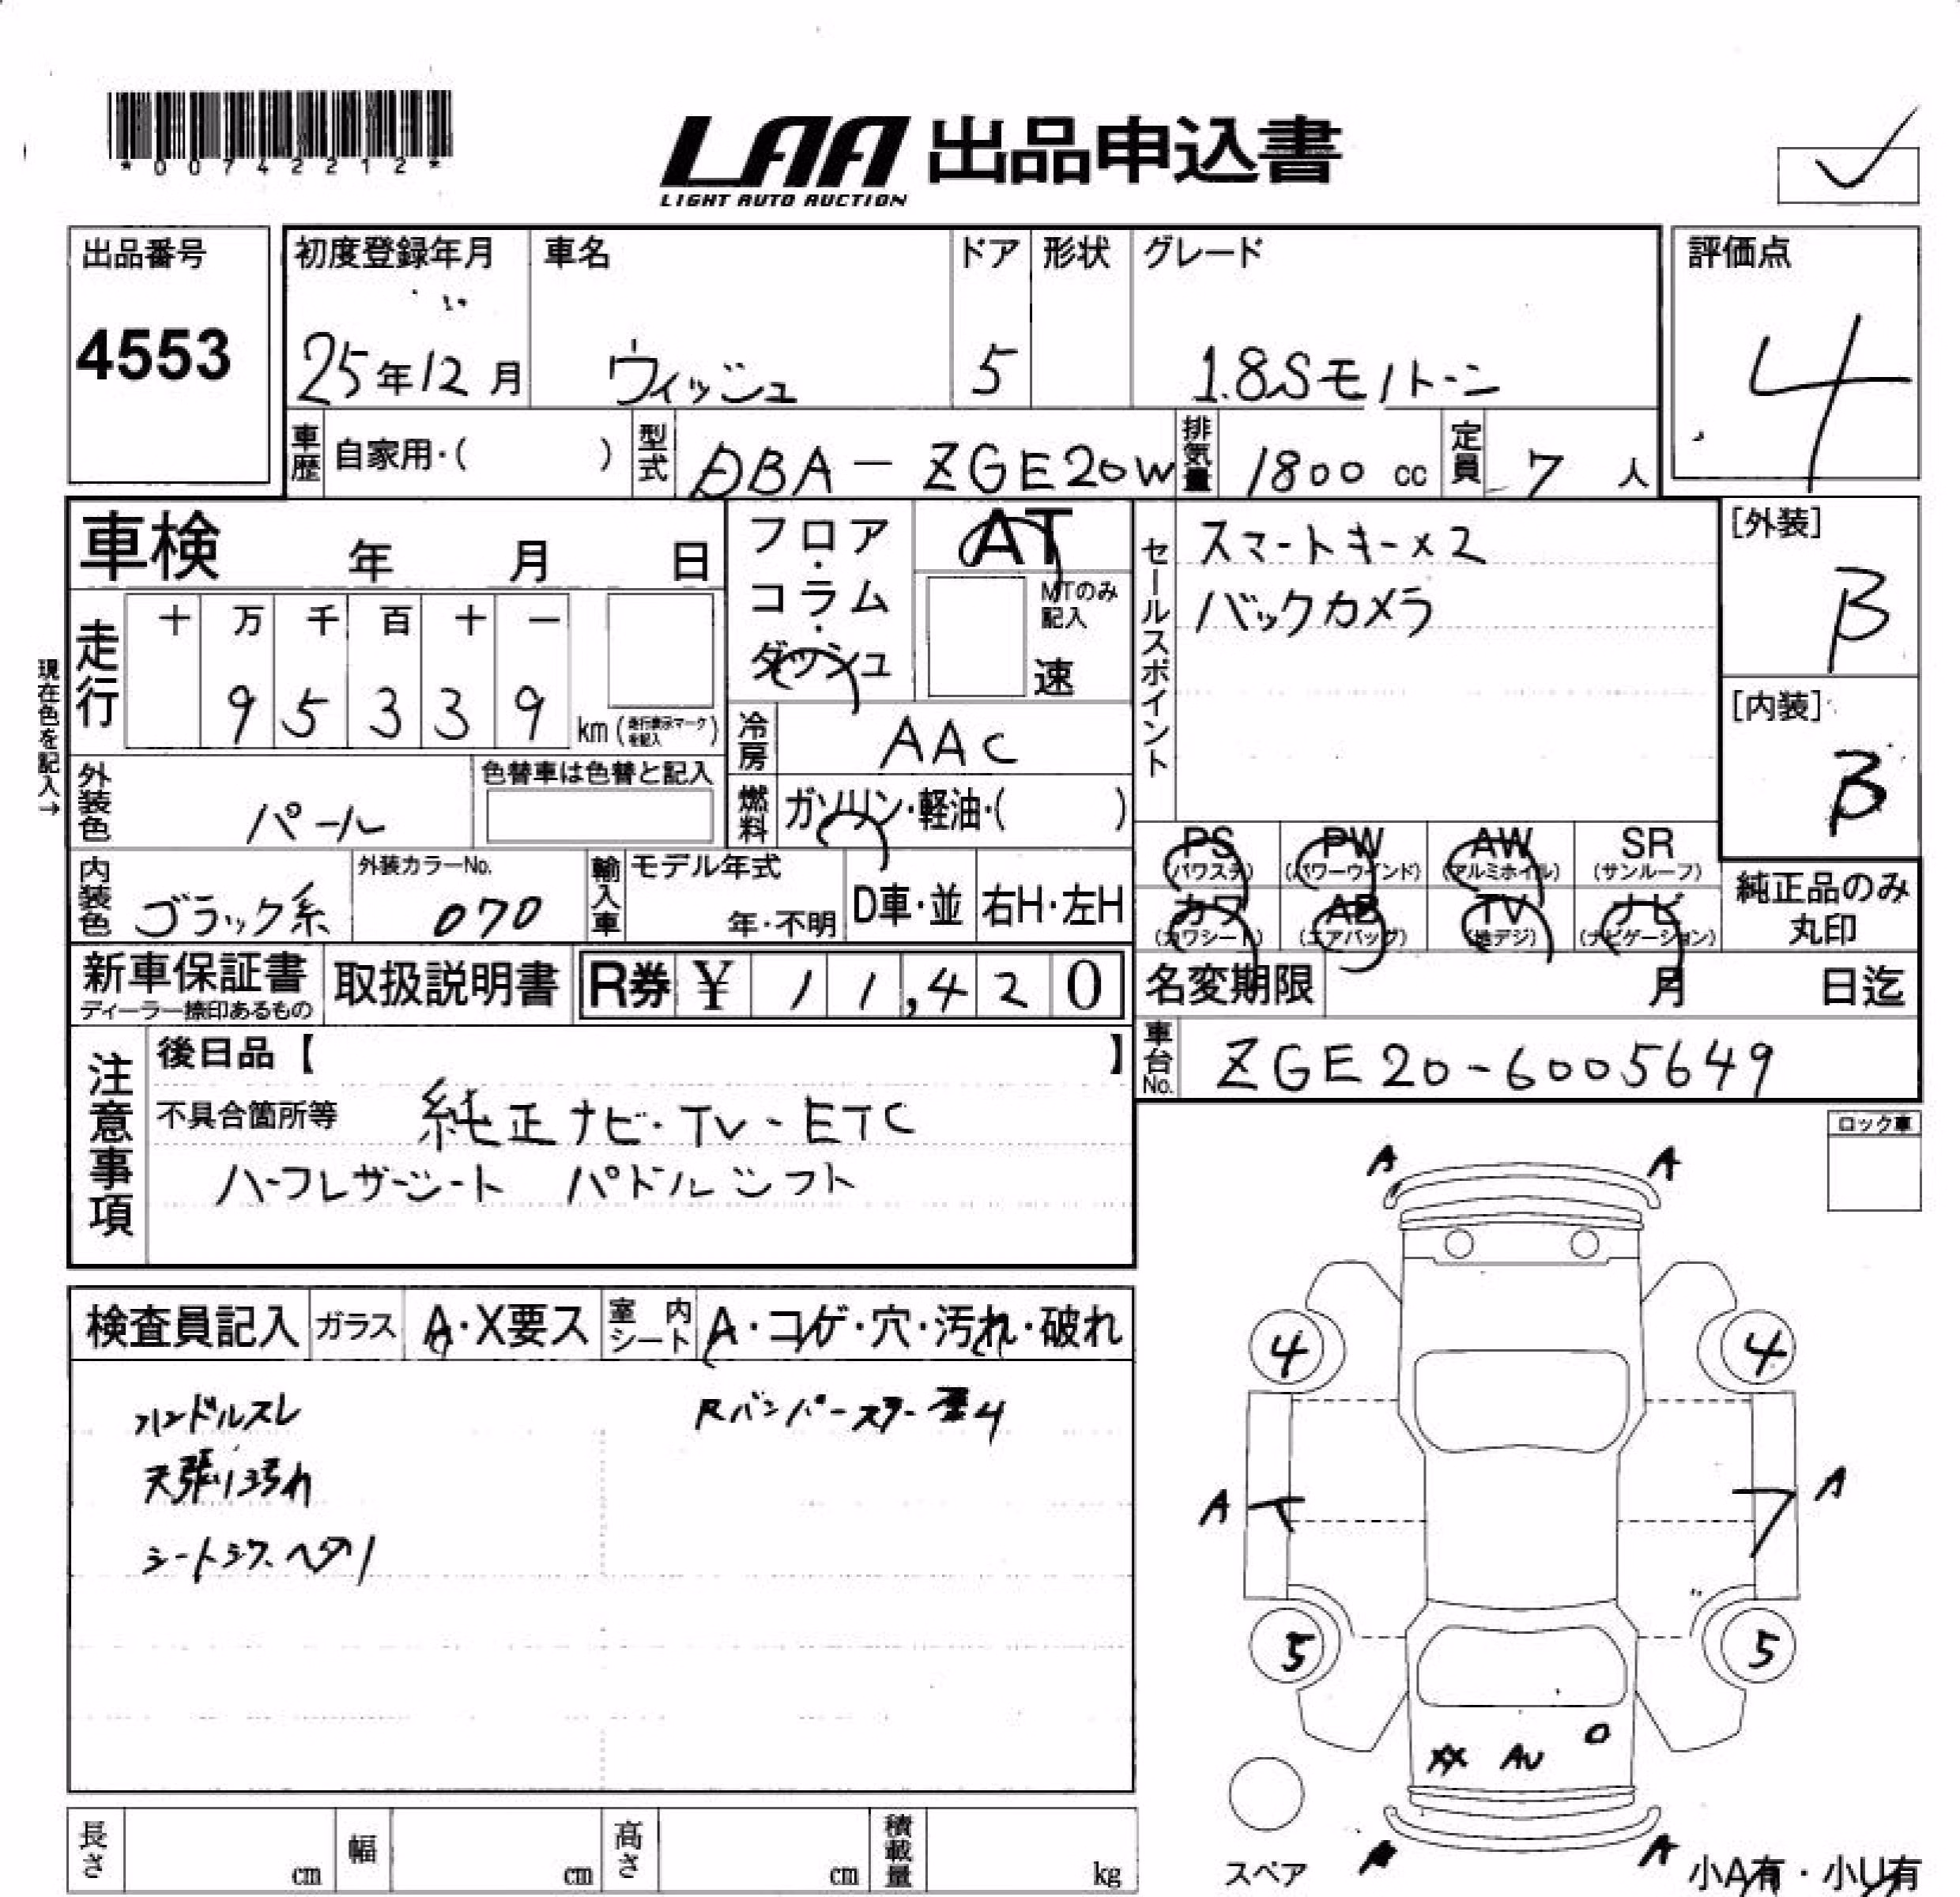 *00742212*
LAA 出品申込書
LIGHT AUTO AUCTION
出品番号
4553
初度登録年月
25年12月
車名
ウィッシュ
ドア
5
形状
グレード
1.8Sモノトーン
評価点
4
車歴
自家用・( )
型式
DBA-ZGE20W
排気量
1800 cc
定員
7 人
車検 年 月 日
フロア・コラム・ダッシュ
AT
MTのみ記入
速
セールスポイント
スマートキー×2
バックカメラ
[外装]
B
[内装]
B
現在色を記入→
走行
十 万 千 百 十 一
9 5 3 3 9
km (走行表示マークを記入)
冷房
AAC
外装色
パール
色替車は色替と記入
燃料
ガソリン・軽油・( )
PS
(パワステ)
PW
(パワーウインド)
AW
(アルミホイル)
SR
(サンルーフ)
カワ
(カワシート)
AB
(エアバッグ)
TV
(地デジ)
ナビ
(ナビゲーション)
純正品のみ
丸印
内装色
ブラック系
外装カラーNo.
070
輸入車
モデル年式
年・不明
D車・並
右H・左H
新車保証書
ディーラー捺印あるもの
取扱説明書
R券 ¥ 11,420
名変期限 月 日迄
車台No.
ZGE20-6005649
注意事項
後日品【 】
不具合箇所等
純正ナビ・TV・ETC
ハーフレザーシート パドルシフト
ロック車
検査員記入
ガラス
A・X要ス
室内シート
A・コゲ・穴・汚れ・破れ
ハンドルスレ
天張り汚れ
シートシワ、ヘタリ
Rバンパースター
A A
4 4
A A
5 5
XX AU
A
スペア
小A有・小U有
長さ cm
幅 cm
高さ cm
積載量 kg